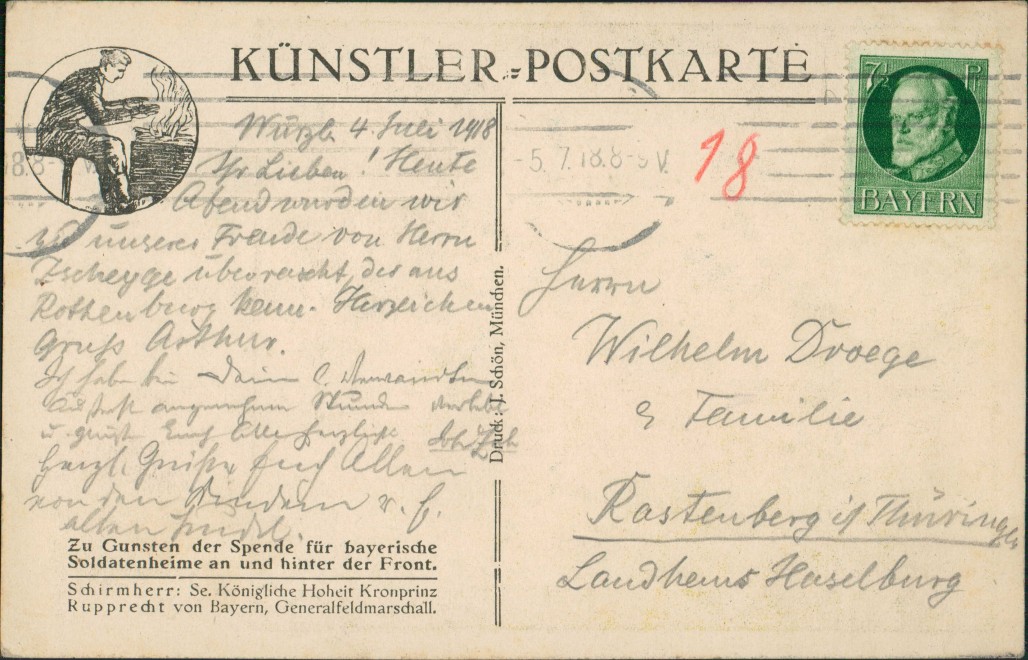 KÜNSTLER-POSTKARTE
7½ P
BAYERN
-5.7.18.8-9 V.
18
Würzb. 4. Juli 1918
Ihr Lieben! Heute
Abend wurden wir
zu unserer Freude von Herrn
Zscheyge überrascht, der aus
Rothenburg kam. Herzlichen
Gruß Arthur.
Ich habe bei Deinen l. Verwandten
angenehme Stunden
u. grüße Euch Alle herzlichst
Herzl. Grüße Euch Allen
von den Kindern u.
alten
Zu Gunsten der Spende für bayerische
Soldatenheime an und hinter der Front.
Schirmherr: Se. Königliche Hoheit Kronprinz
Rupprecht von Bayern, Generalfeldmarschall.
Druck: J. Schön, München.
Herrn
Wilhelm Droege
& Familie
Rastenberg i/Thüringen
Landhaus Haselburg